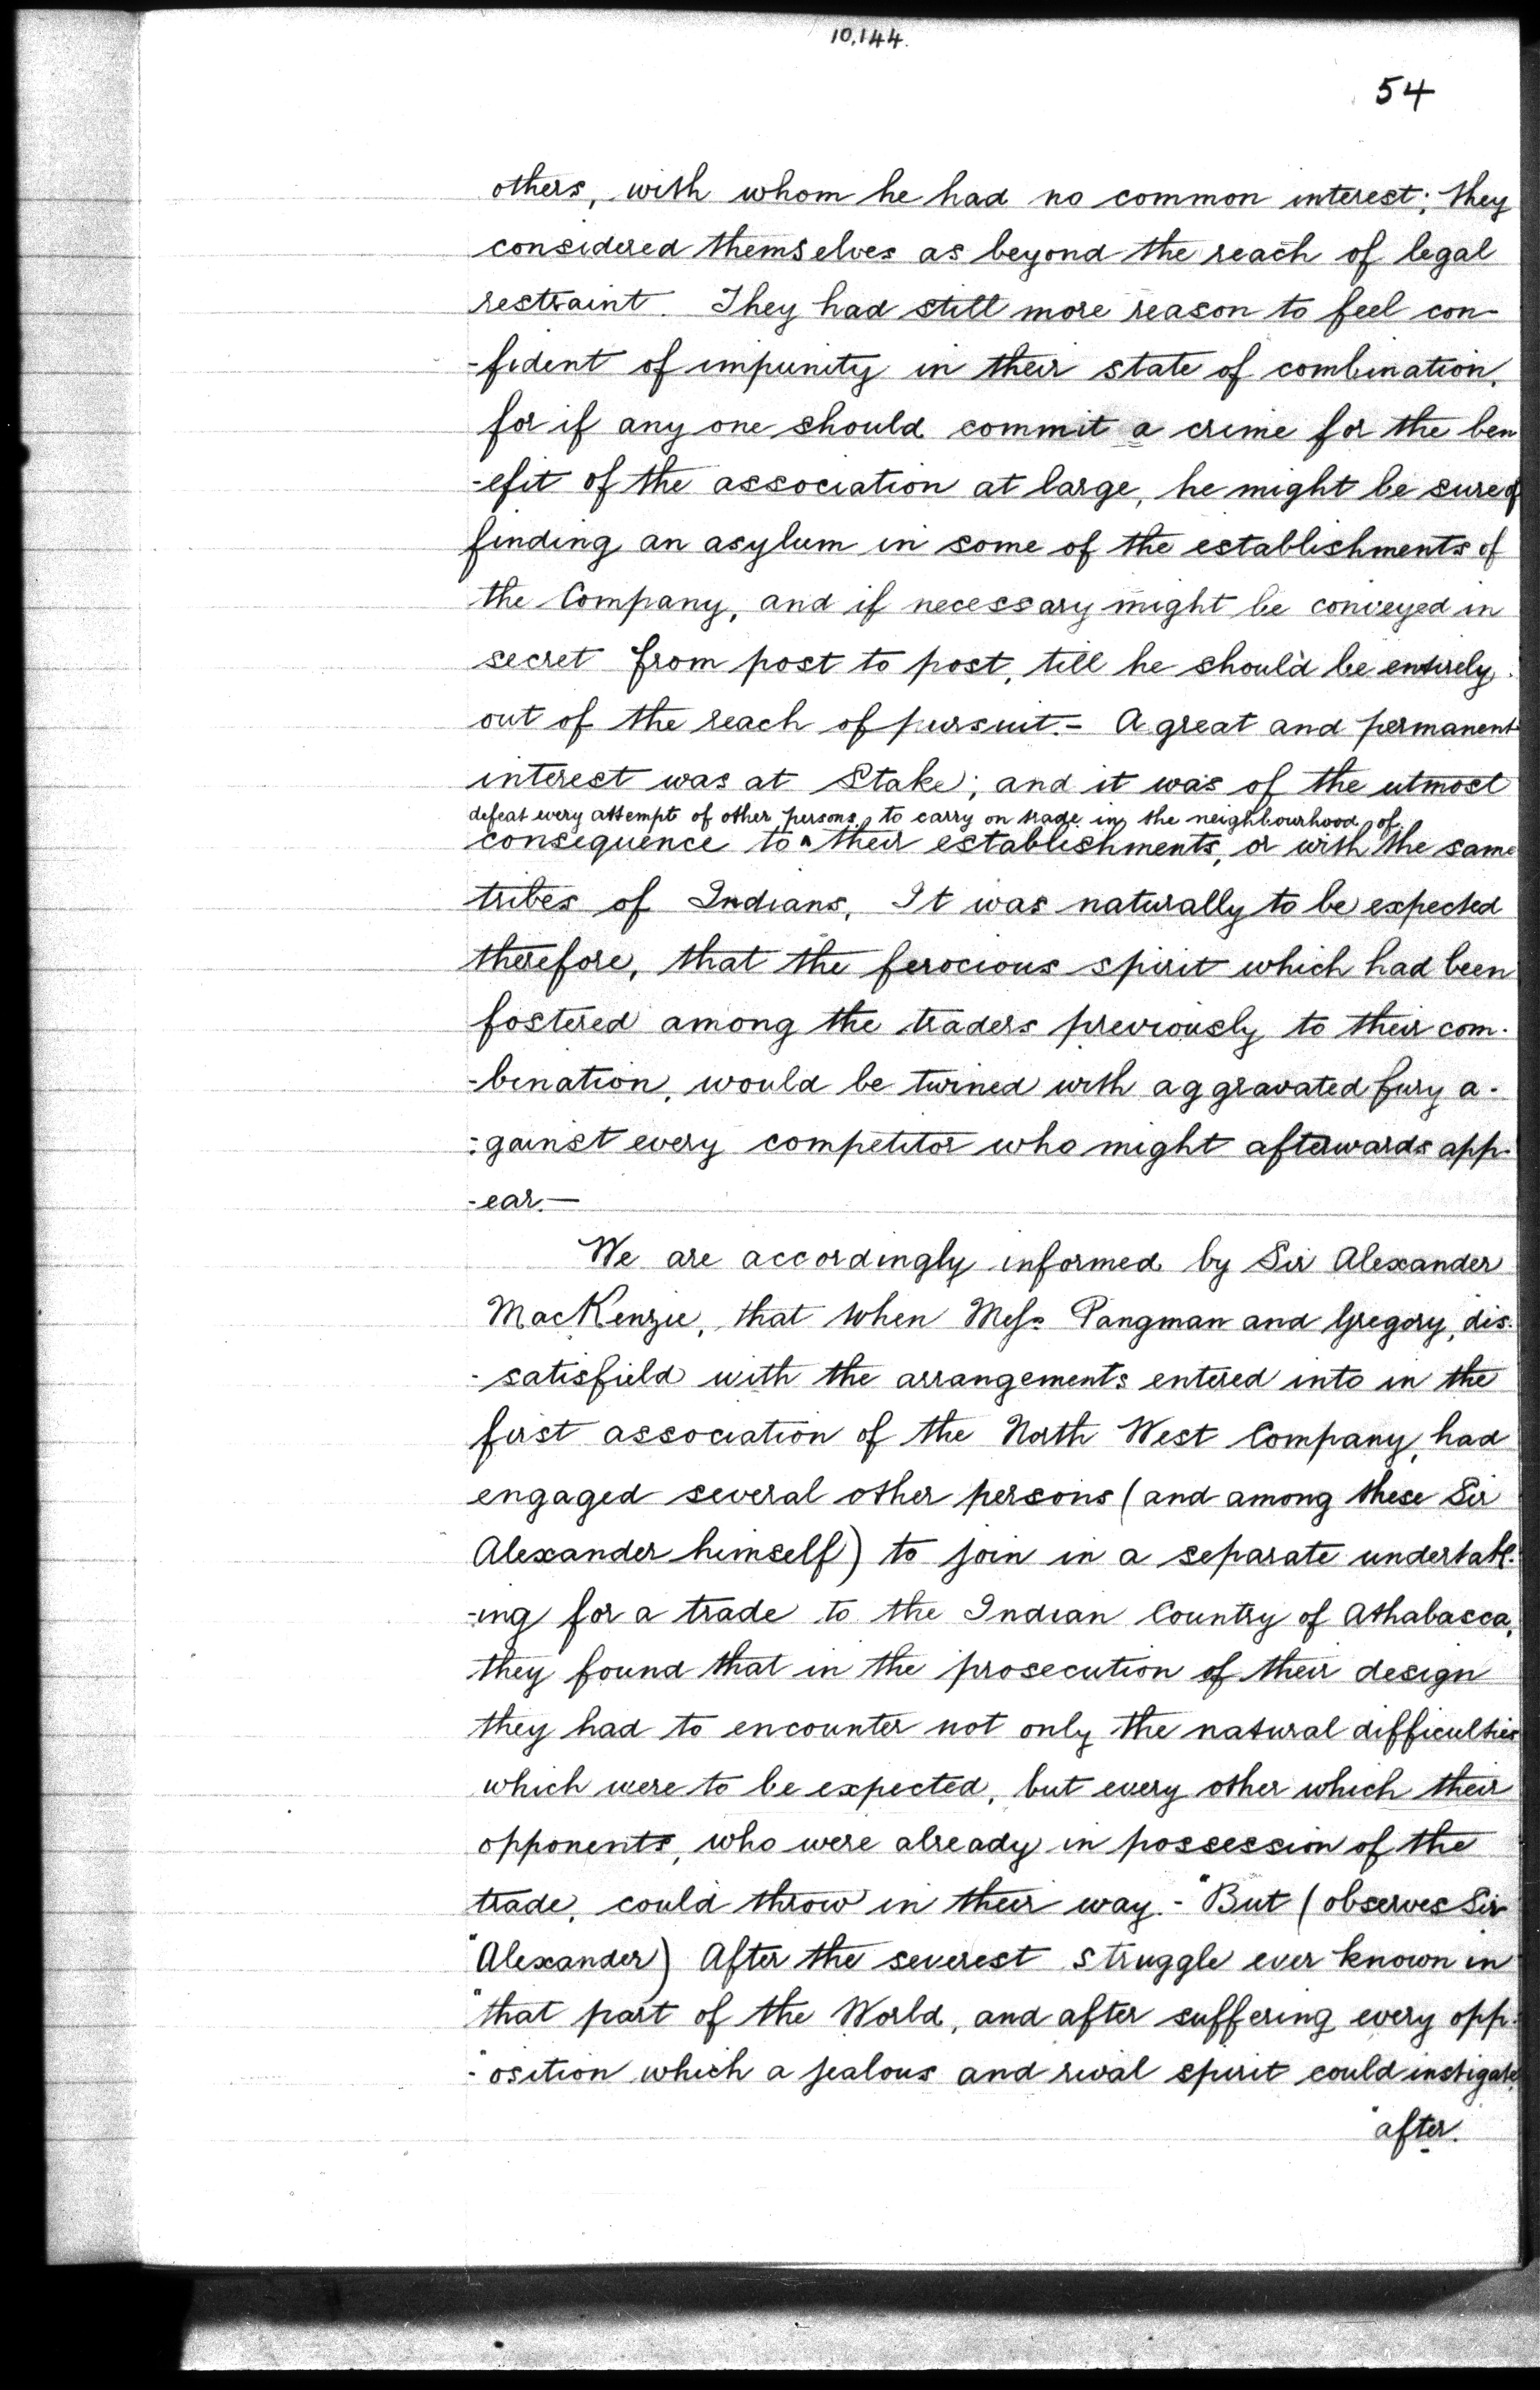 10,144.
54
others, with whom he had no common interest; they
considered themselves as beyond the reach of legal
restraint. They had still more reason to feel con-
-fident of impunity in their state of combination,
for if any one should commit a crime for the ben
-efit of the association at large, he might be sure of
finding an asylum in some of the establishments of
the Company, and if necessary might be conveyed in
secret from post to post, till he should be entirely
out of the reach of pursuit.- A great and permanent
interest was at Stake; and it was of the utmost
defeat every attempt of other persons, to carry on trade in the neighbourhood of
consequence to ^ their establishments, or with the same
tribes of Indians. It was naturally to be expected
therefore, that the ferocious spirit which had been
fostered among the traders previously to their com-
-bination, would be turned with aggravated fury a-
-gainst every competitor who might afterwards app-
-ear.—
We are accordingly informed by Sir Alexander
MacKenzie, that when Messrs Pangman and Gregory, dis-
-satisfield with the arrangements entered into in the
first association of the North West Company, had
engaged several other persons (and among these Sir
Alexander himself) to join in a separate undertak-
-ing for a trade to the Indian Country of Athabasca,
they found that in the prosecution of their design
they had to encounter not only the natural difficulties
which were to be expected, but every other which their
opponents, who were already in possession of the
trade, could throw in their way.- "But (observes Sir
"Alexander) After the severest struggle ever known in
"that part of the World, and after suffering every opp-
-"osition which a jealous and rival spirit could instigate,
"after.